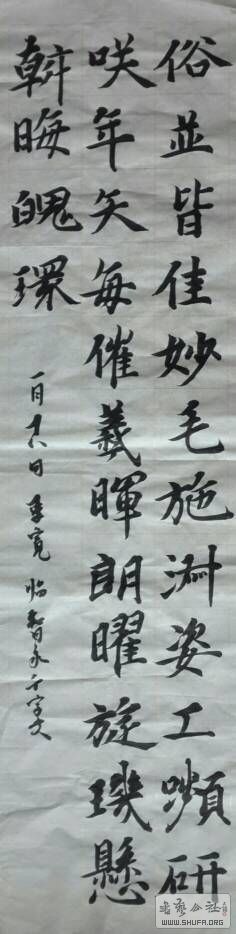 俗並皆佳妙毛施淑姿工嚬研
咲年矢每催羲暉朗曜旋璣懸
斡晦魄環
一月十六日季寬臨智永千字文
書藝公社
WWW.SHUFA.ORG